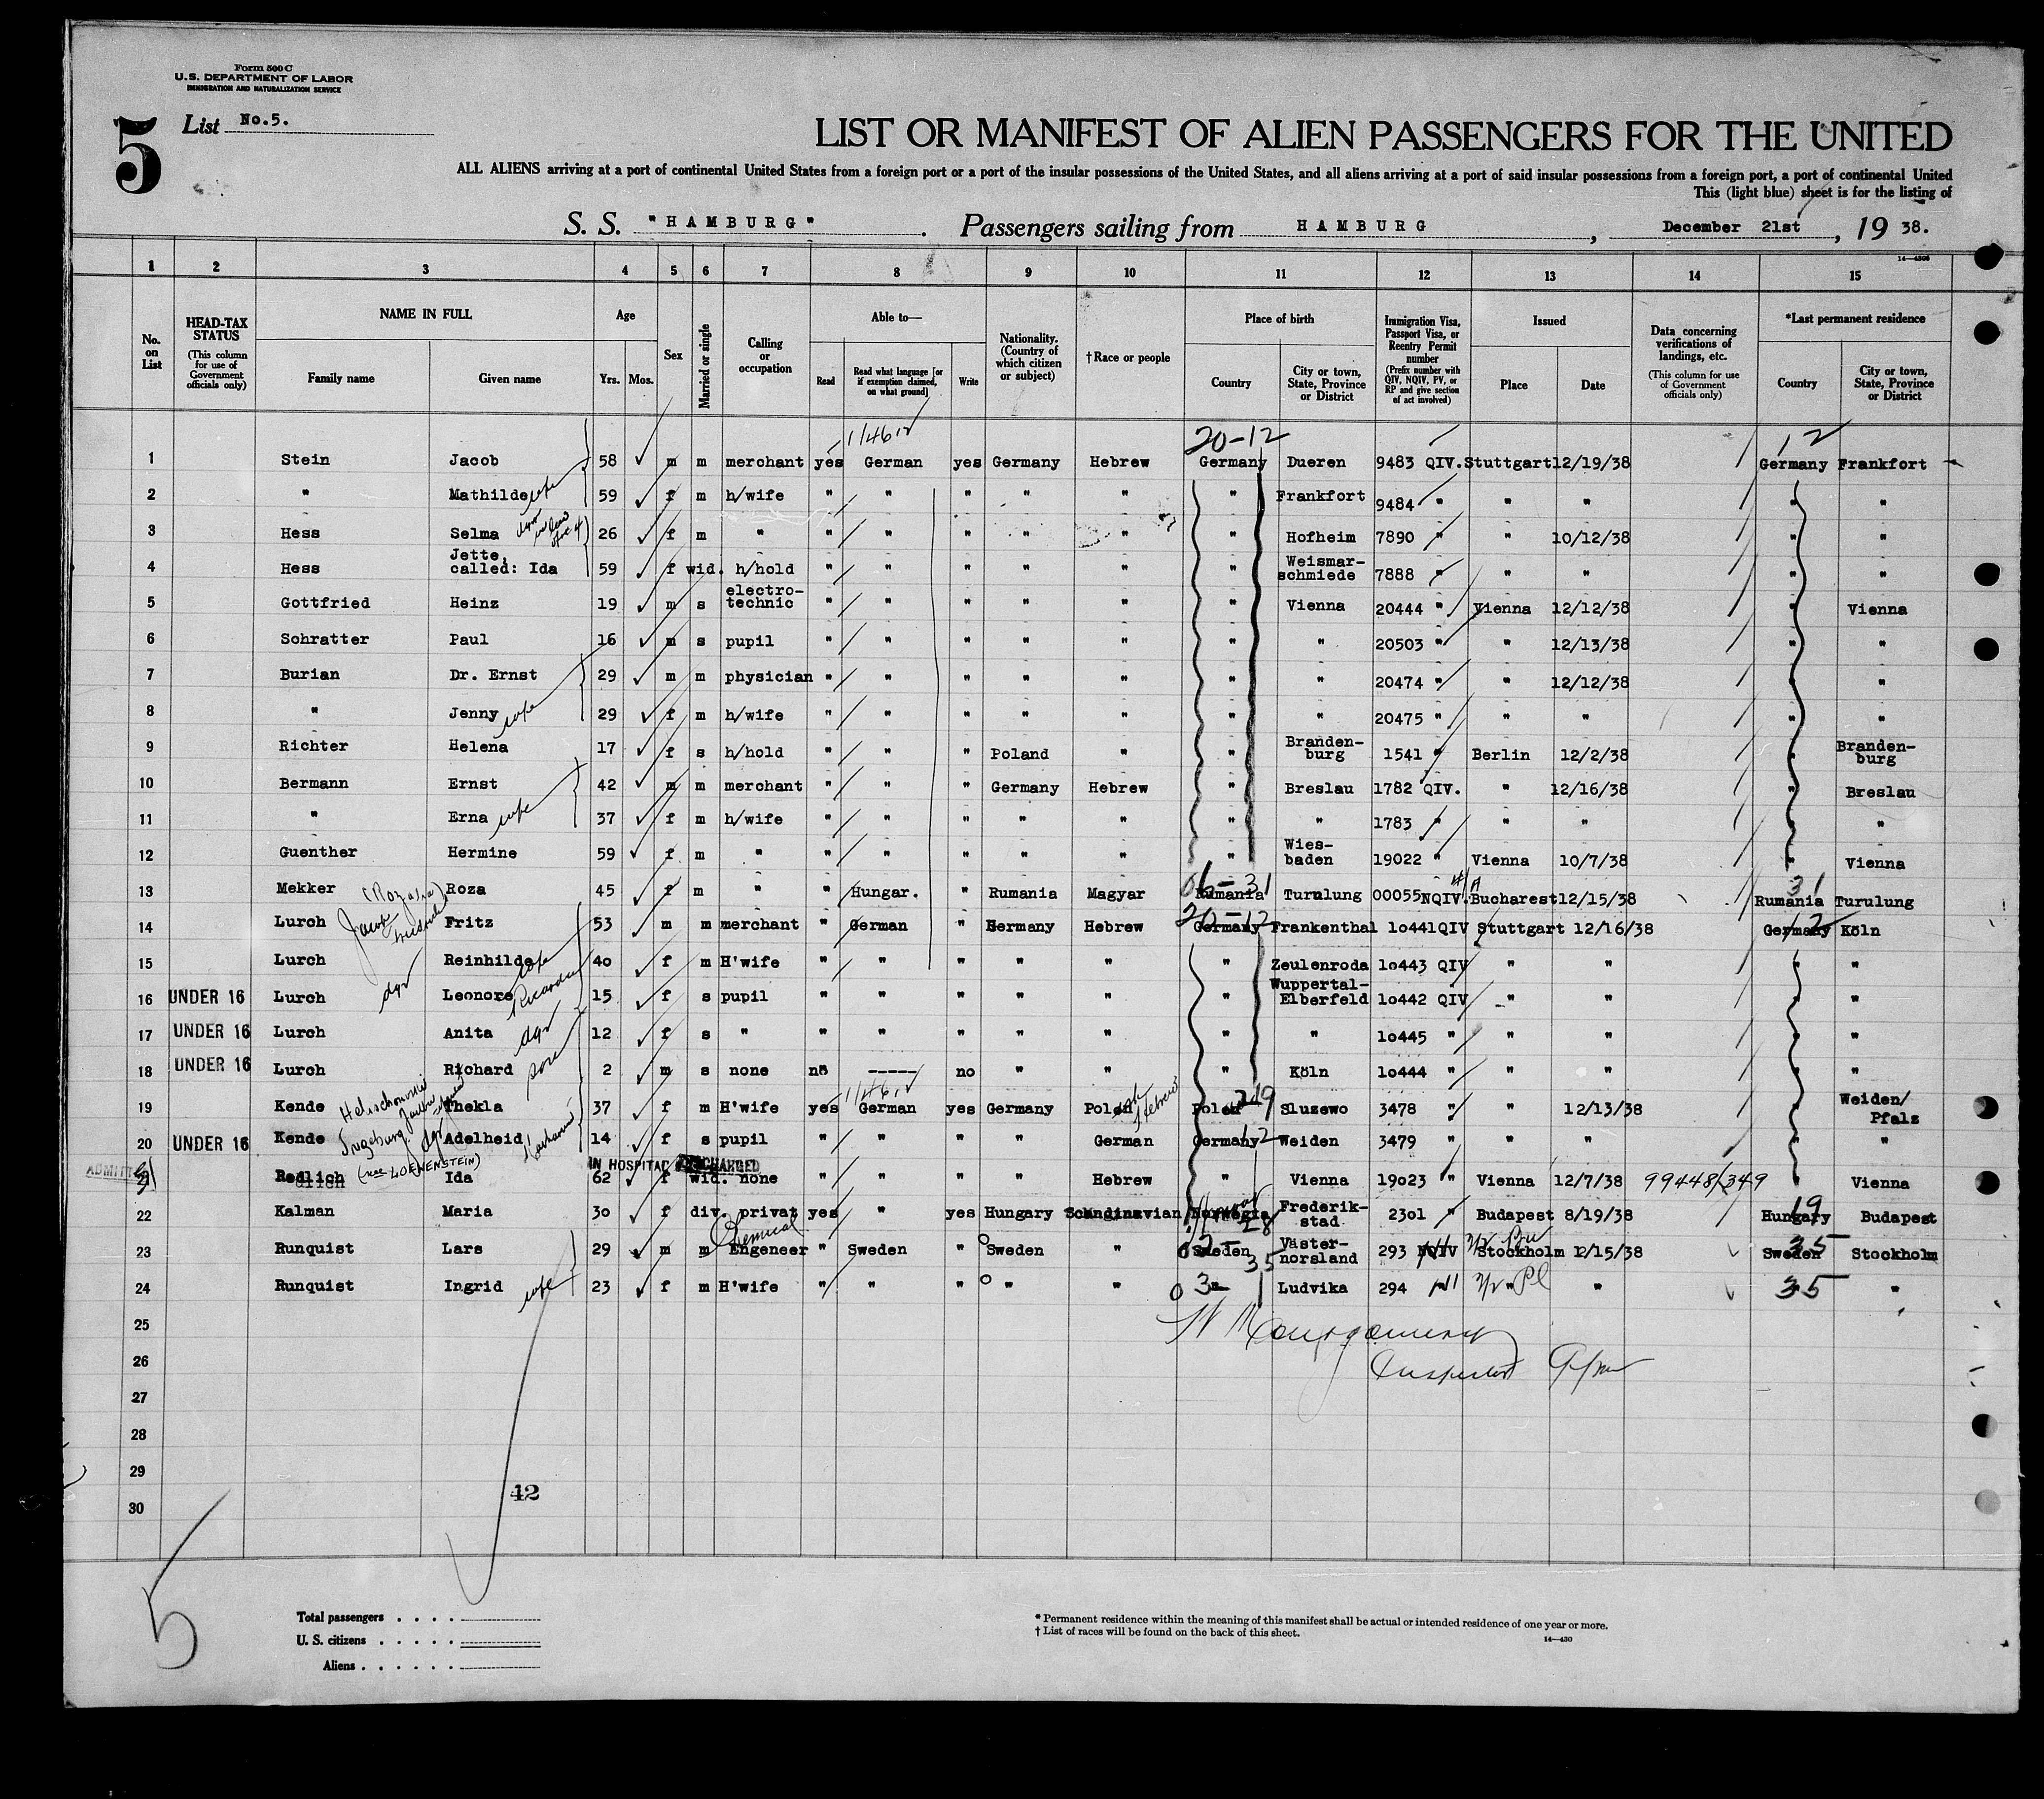 Form 500 C
U.S. DEPARTMENT OF LABOR
IMMIGRATION AND NATURALIZATION SERVICE
5 List No.5.
LIST OR MANIFEST OF ALIEN PASSENGERS FOR THE UNITED
ALL ALIENS arriving at a port of continental United States from a foreign port or a port of the insular possessions of the United States, and all aliens arriving at a port of said insular possessions from a foreign port, a port of continental United
This (light blue) sheet is for the listing of
S. S. "HAMBURG". Passengers sailing from HAMBURG, December 21st, 19 38.
14—4306
1 2 3 4 5 6 7 8 9 10 11 12 13 14 15
No. on List
HEAD-TAX STATUS (This column for use of Government officials only)
NAME IN FULL
Family name Given name
Age
Yrs. Mos.
Sex
Married or single
Calling or occupation
Able to—
Read Read what language [or if exemption claimed, on what ground] Write
Nationality. (Country of which citizen or subject)
†Race or people
Place of birth
Country City or town, State, Province or District
Immigration Visa, Passport Visa, or Reentry Permit number (Prefix number with QIV, NQIV, PV, or RP and give section of act involved)
Issued
Place Date
Data concerning verifications of landings, etc. (This column for use of Government officials only)
*Last permanent residence
Country City or town, State, Province or District
20-12 12
1 Stein Jacob 58 m m merchant yes German yes Germany Hebrew Germany Dueren 9483 QIV. Stuttgart 12/19/38 Germany Frankfort
2 " Mathilde wife 59 f m h/wife " " " " " " Frankfort 9484 " " " " "
3 Hess Selma 26 f m " " " " " " " Hofheim 7890 " " 10/12/38 " "
4 Hess Jette, called: Ida 59 f wid. h/hold " " " " " " Weismar-schmiede 7888 " " " " "
5 Gottfried Heinz 19 m s electro-technic " " " " " " Vienna 20444 " Vienna 12/12/38 " Vienna
6 Schratter Paul 16 m s pupil " " " " " " " 20503 " " 12/13/38 " "
7 Burian Dr. Ernst 29 m m physician " " " " " " " 20474 " " 12/12/38 " "
8 " Jenny wife 29 f m h/wife " " " " " " " 20475 " " " " "
9 Richter Helena 17 f s h/hold " " " Poland " " Branden-burg 1541 " Berlin 12/2/38 " Branden-burg
10 Bermann Ernst 42 m m merchant " " " Germany Hebrew " Breslau 1782 QIV. " 12/16/38 " Breslau
11 " Erna wife 37 f m h/wife " " " " " " " 1783 " " " " "
12 Guenther Hermine 59 f m " " " " " " " Wies-baden 19022 " Vienna 10/7/38 " Vienna
13 Mekker (Rozalia) Roza 45 f m " " Hungar. " Rumania Magyar Rumania Turulung 00055 NQIV. Bucharest 12/15/38 Rumania Turulung
14 Lurch Fritz 53 m m merchant " German " Germany Hebrew Germany Frankenthal 1o441QIV Stuttgart 12/16/38 Germany Köln
15 Lurch Reinhilde wife 4o f m H'wife " " " " " " Zeulenroda 1o443 QIV " " " "
16 UNDER 16 Lurch dgr Leonore Ricarda 15 f s pupil " " " " " " Wuppertal-Elberfeld 1o442 QIV " " " "
17 UNDER 16 Lurch Anita dgr 12 f s " " " " " " " " 1o445 " " " " "
18 UNDER 16 Lurch Richard son 2 m s none no ----- no " " " Köln 1o444 " " " " "
19 Kende Thekla 37 f m H'wife yes German yes Germany Polen Hebrew Polen Sluzewo 3478 " " 12/13/38 Weiden/Pfalz
20 UNDER 16 Kende Ingeburg dgr Adelheid 14 f s pupil " " " " German Germany Weiden 3479 " " " " "
ADMITTED (nee LOEWENSTEIN) IN HOSPITAL DISCHARGED
21 Redlich Ida 62 f wid. none " " " " Hebrew " Vienna 19o23 " Vienna 12/7/38 99448/349 " Vienna
22 Kalman Maria 3o f div. privat yes " yes Hungary Scandinavian Norwegia Frederik-stad 23o1 " Budapest 8/19/38 Hungary Budapest
23 Runquist Lars 29 m m Chemical Engeneer " Sweden " Sweden " Sweden Väster-norsland 293 NQIV Stockholm 12/15/38 Sweden Stockholm
24 Runquist Ingrid wife 23 f m H'wife " " " " " " Ludvika 294 " " " 35 "
25
26
27
28
29
30
42
5
Total passengers . . . .
U. S. citizens . . . . .
Aliens . . . . . .
* Permanent residence within the meaning of this manifest shall be actual or intended residence of one year or more.
† List of races will be found on the back of this sheet.
14—430